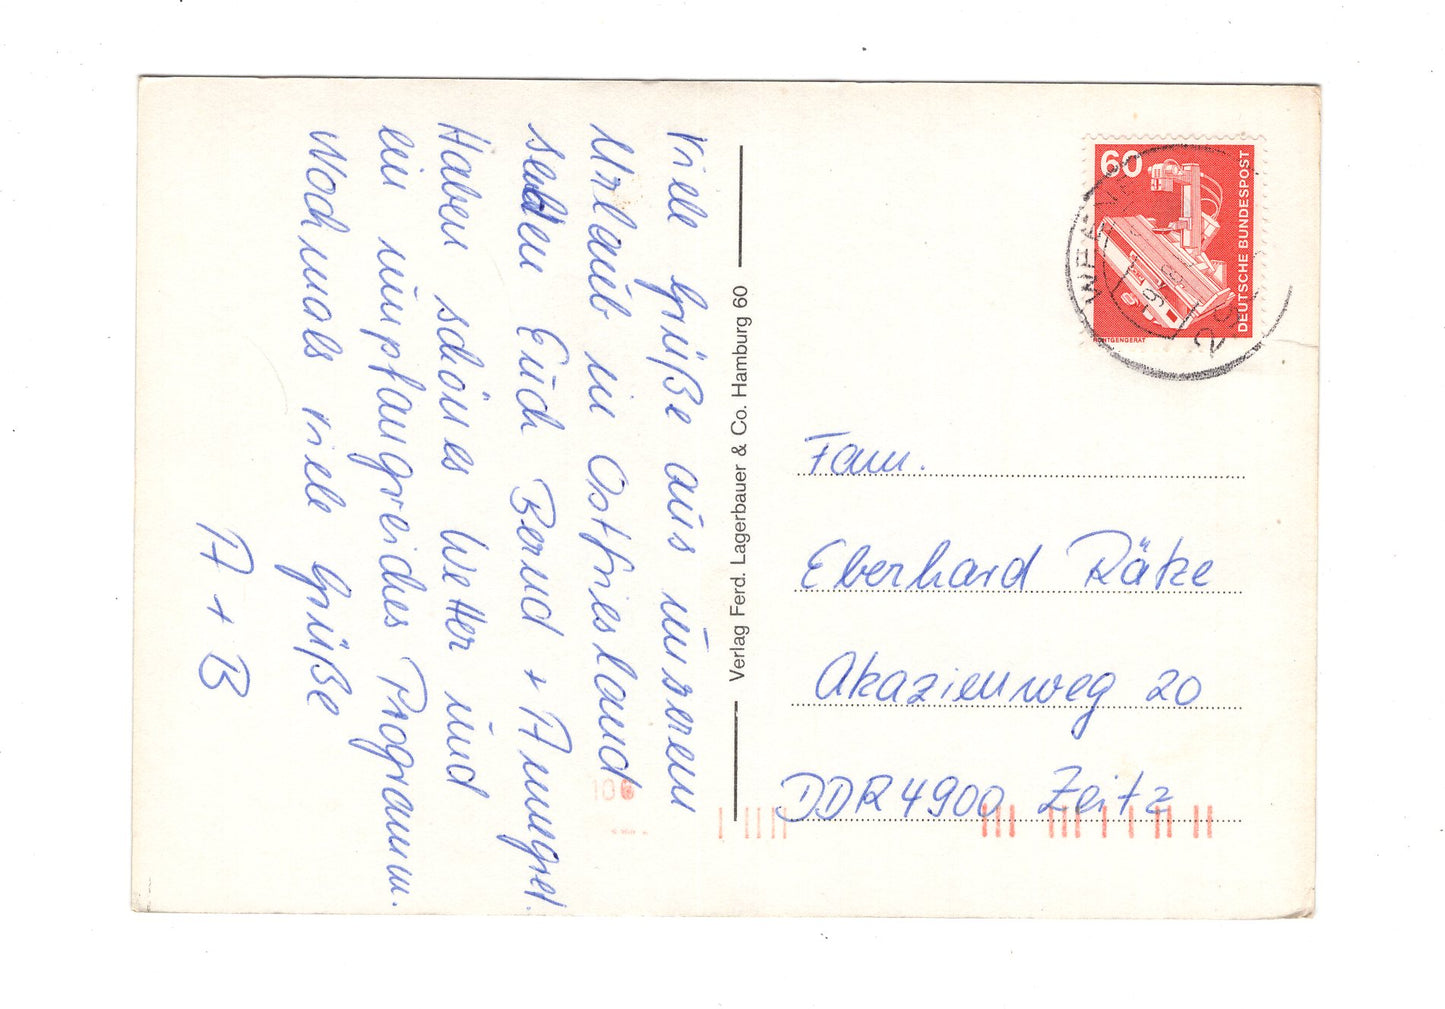 Viele Grüße aus unserem
Urlaub in Ostfriesland
senden Euch Bernd + Annegret.
Haben schönes Wetter und
ein umpfangreiches Programm.
Nochmals viele Grüße
A + B
Verlag Ferd. Lagerbauer & Co. Hamburg 60
60
DEUTSCHE BUNDESPOST
RÖNTGENGERÄT
WEENER
Fam.
Eberhard Rätze
Akazienweg 20
DDR 4900 Zeitz
106